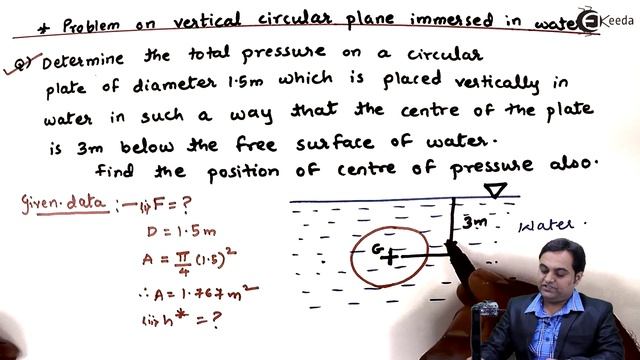 * Problem on vertical circular plane immersed in water
Keeda
Q) Determine the total pressure on a circular
plate of diameter 1.5m which is placed vertically in
water in such a way that the centre of the plate
is 3m below the free surface of water.
Find the position of centre of pressure also.
Given data :- (i) F = ?
D = 1.5m
A = π/4 (1.5)²
∴ A = 1.767m²
(ii) h* = ?
G
3m
Water.